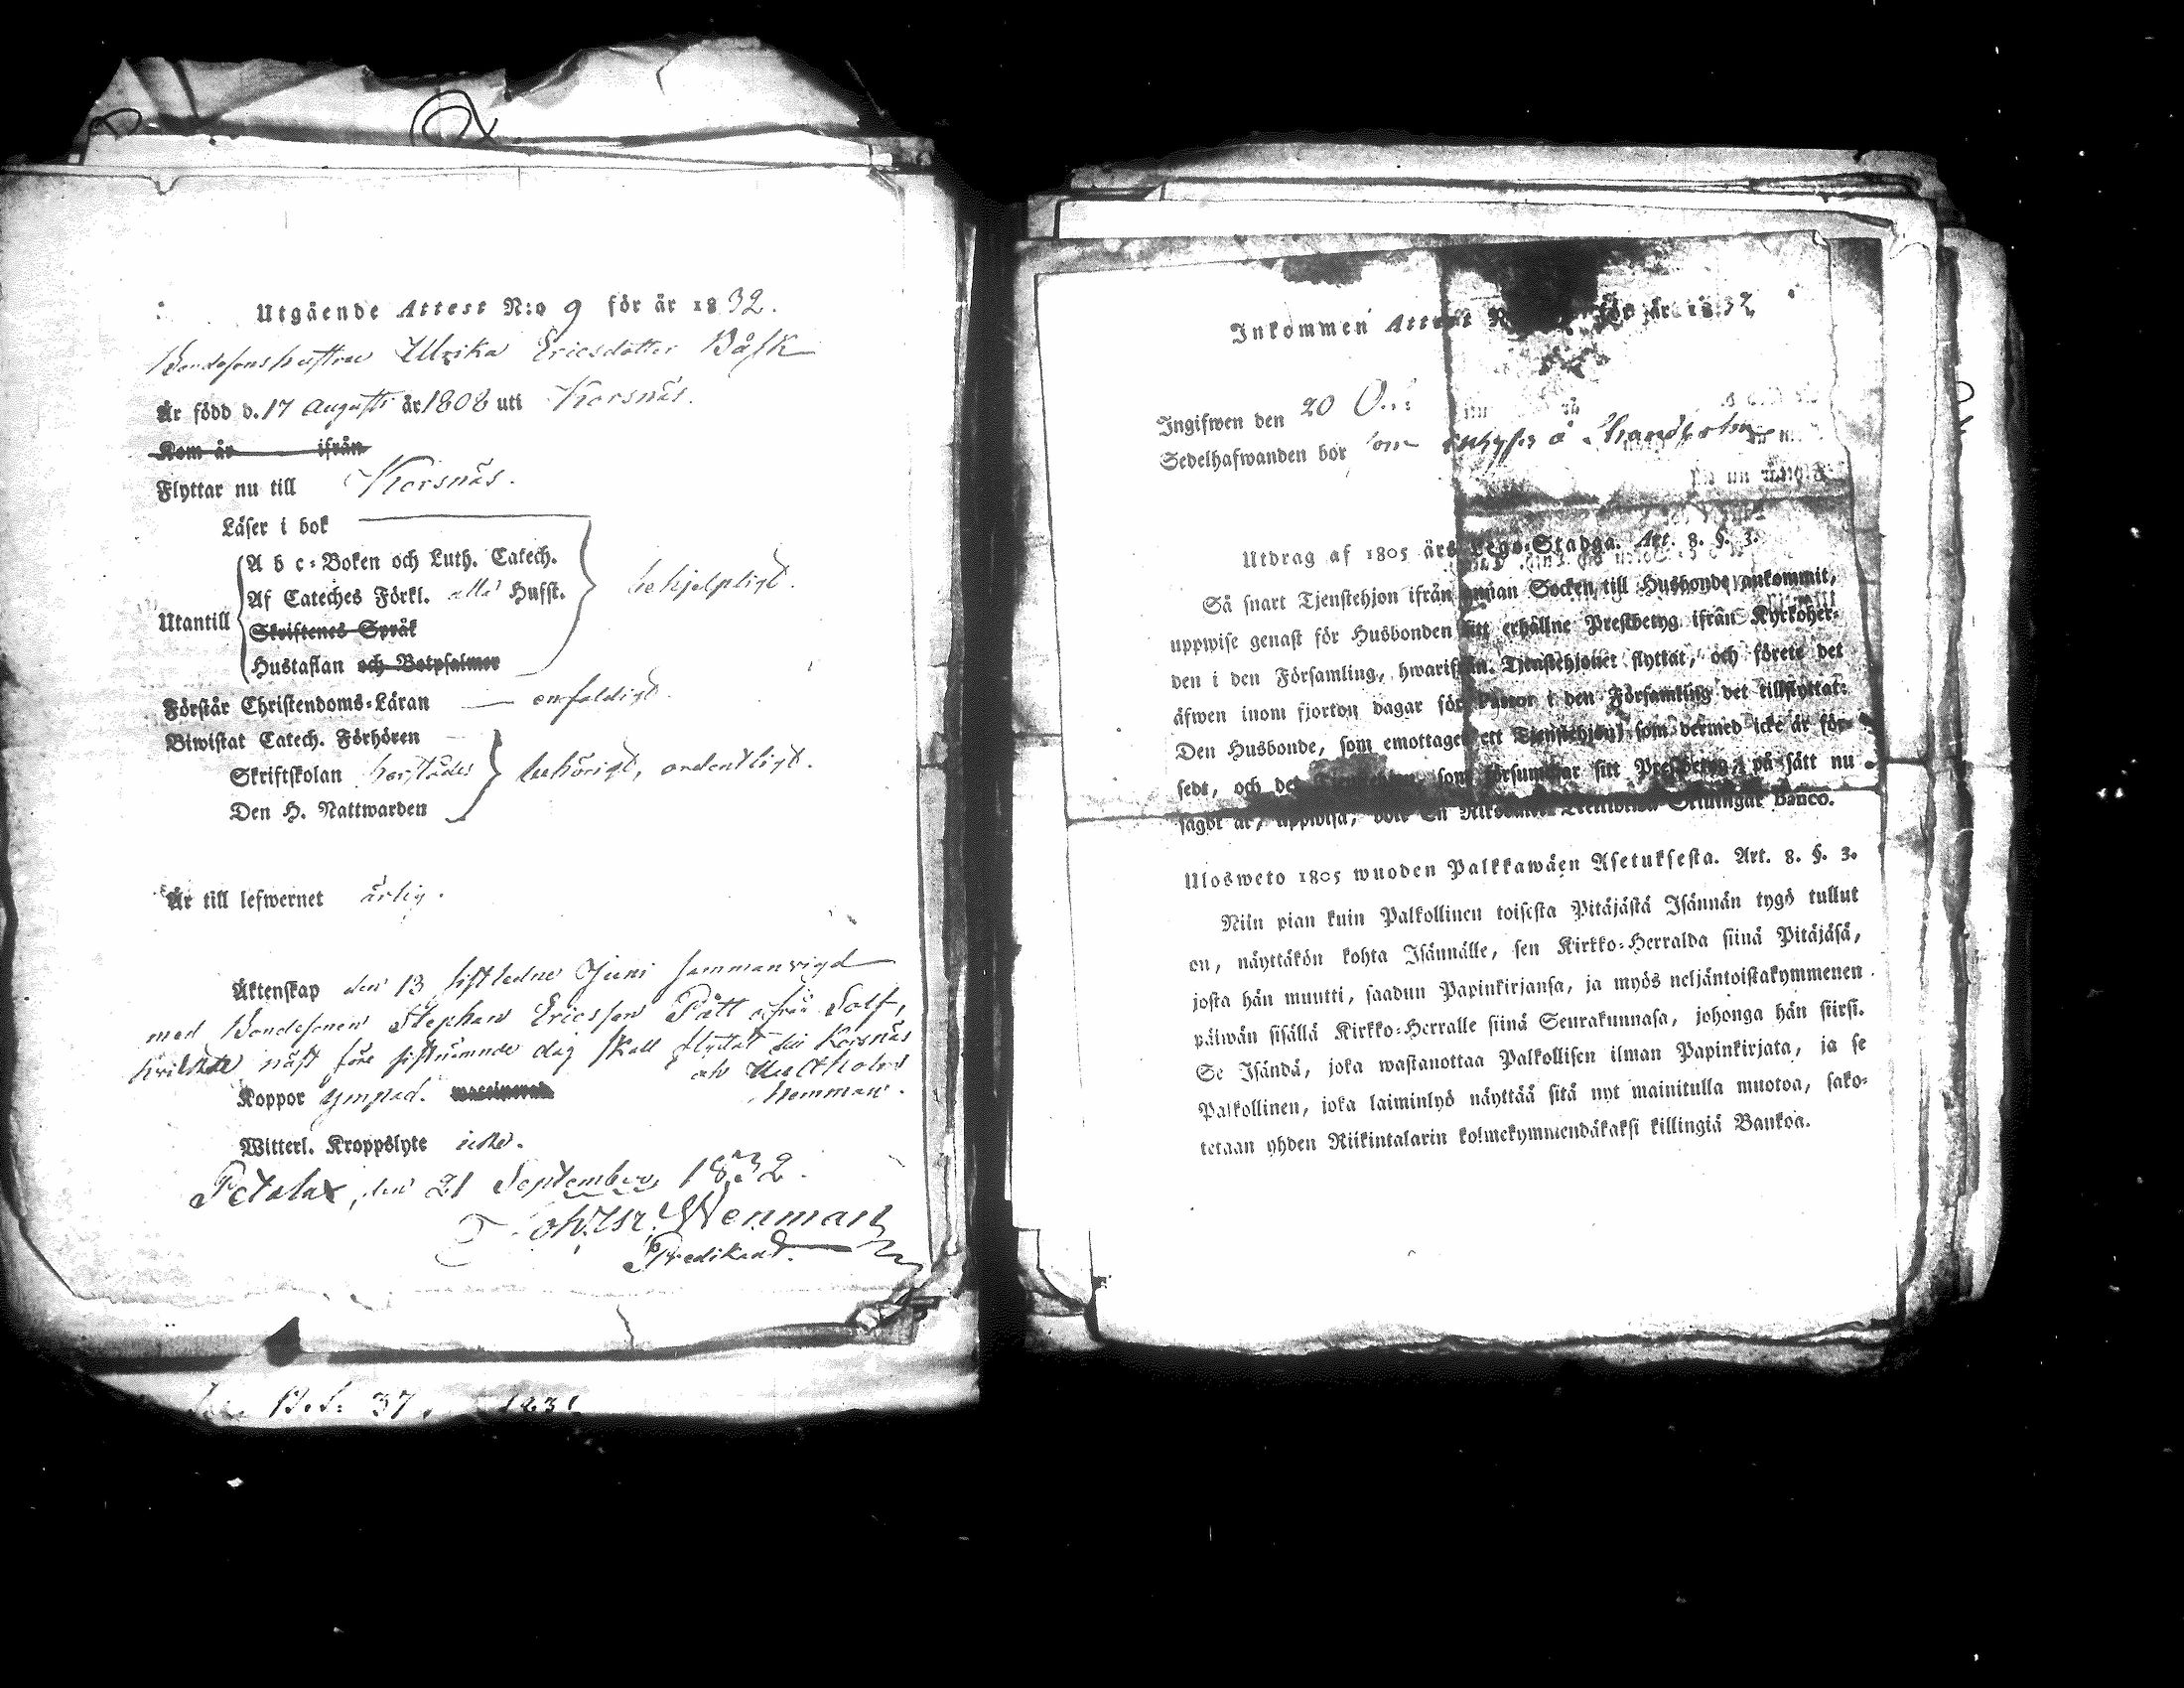 Utgående Attest N:o 9 för år 1832.
Bondesonshustrun Ulrika Ericsdotter Båsk
Är född d. 17 Augusti år 1808 uti Korsnäs.
Kom år ifrån
Flyttar nu till Korsnäs.
Läser i bok
Utantill
A b c-Boken och Luth. Catech.
Af Cateches Förkl. alla Husst.
Skriftenes Språk
Hustaflan och Botpsalmer
behjelpligt.
Förstår Christendoms-Läran enfaldigt.
Biwistat Catech. Förhören
Skriftskolan härstädes
Den H. Nattwarden
behörigt, ordentligt.
Är till lefwernet ärlig.
Äktenskap den 13 sistledne Juni sammanvigd
med Bondesonen Stephan Ericsson Pått ifrån Solf,
näst före sistnämnde dag skall flyttat till Korsnäs
och hemman.
Koppor ympad. waccinerad
Witterl. Kroppslyte icke.
Petalax, den 21 September 1832.
Joh. Isr. Wenman
Predikant.
37. 1831
Inkommen Attest för år 1832
Ingifwen den 20
Sedelhafwanden bor som å
Utdrag af 1805 års Lego-Stadga. Art. 8. §. 3.
Så snart Tjenstehjon ifrån annan Socken till Husbonde ankommit,
uppwise genast för Husbonden sitt erhållne Prestbetyg ifrån Kyrkoher-
den i den Församling, hwarifrån Tjenstehjonet flyttat, och förete det
äfwen inom fjorton dagar för Pastor i den Församling det tillflyttat:
Den Husbonde, som emottager ett Tjenstehjon, som dermed icke är för-
sedt, och det som försummar sitt Prestbetyg, på sätt nu
sagdt är, uppwisa, böte en Skillingar Banco.
Ulosweto 1805 wuoden Palkkawäen Asetuksesta. Art. 8. §. 3.
Niin pian kuin Palkollinen toisesta Pitäjästä Isännän tygö tullut
on, näyttäkön kohta Isännälle, sen Kirkko-Herralda siinä Pitäjäsä,
josta hän muutti, saadun Papinkirjansa, ja myös neljäntoistakymmenen
päiwän sisällä Kirkko-Herralle siinä Seurakunnasa, johonga hän siirsi.
Se Isändä, joka wastanottaa Palkollisen ilman Papinkirjata, ja se
Palkollinen, joka laiminlyö näyttää sitä nyt mainitulla muotoa, sako-
tetaan yhden Riikintalarin kolmekymmendäkaksi killingiä Bankoa.